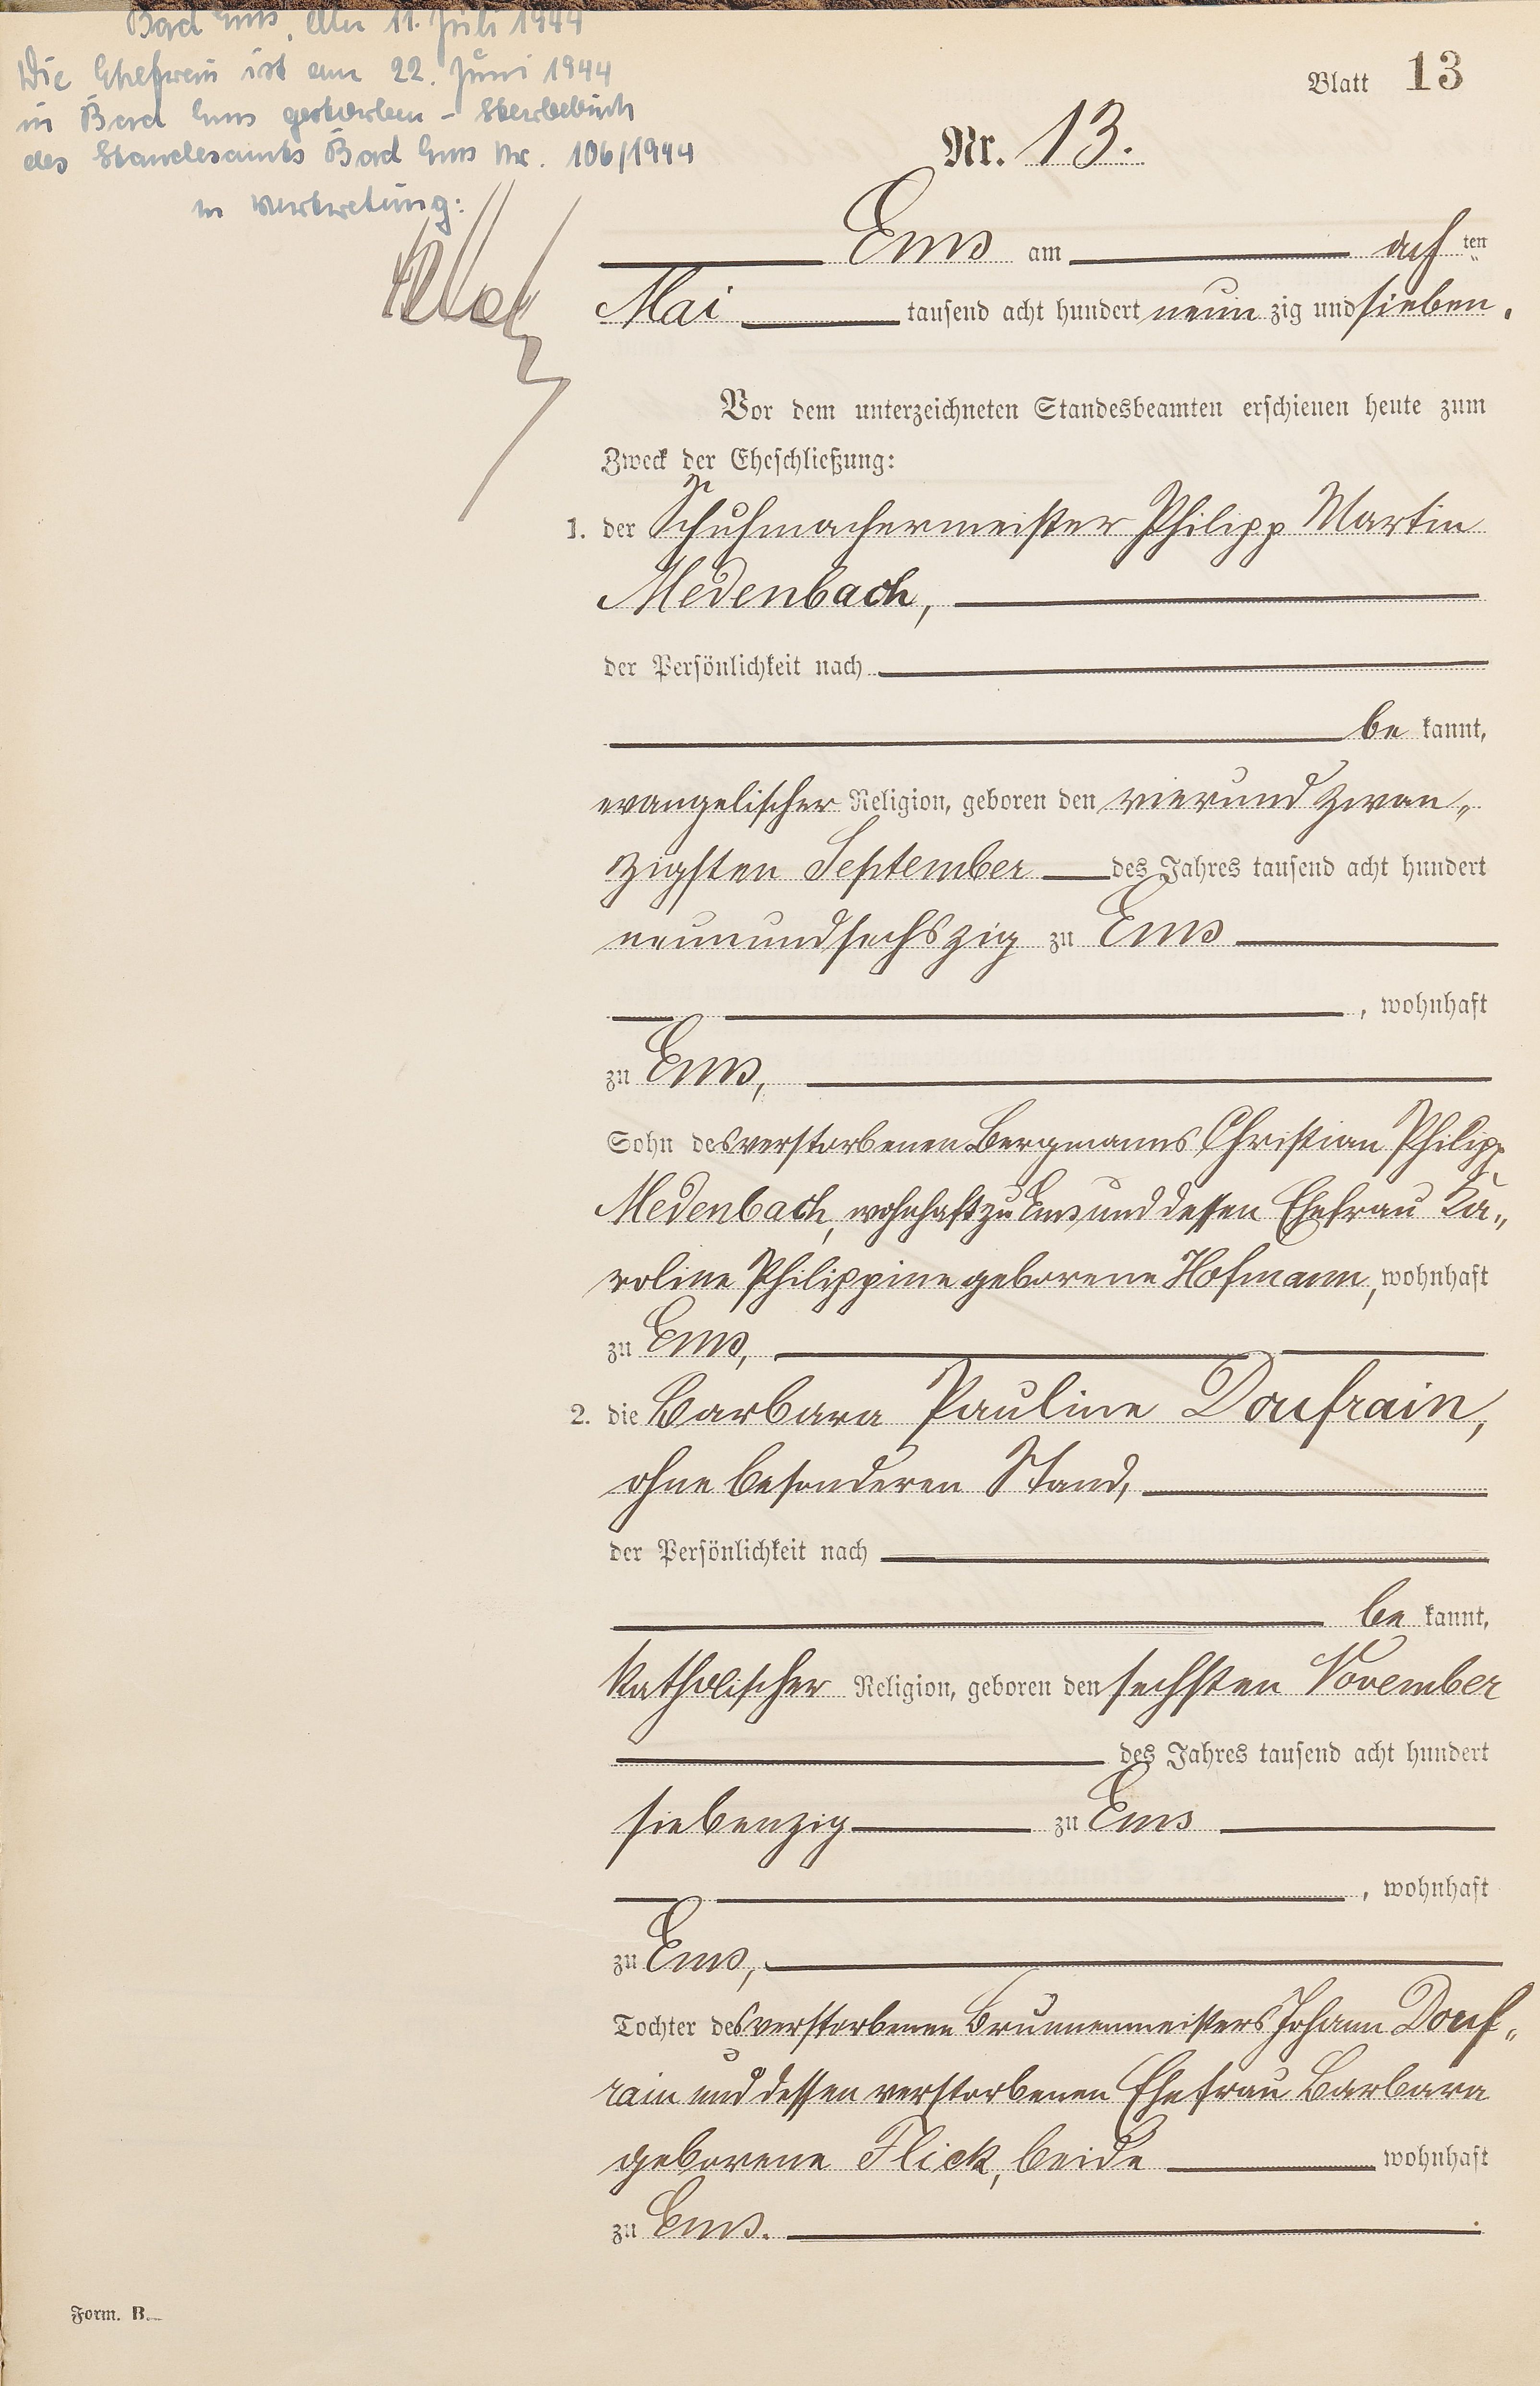 Bad Ems, den 11. Juli 1944
Die Ehefrau ist am 22. Juni 1944
in Bad Ems gestorben – Sterbebuch
des Standesamts Bad Ems Nr. 106/1944
in Vertretung:
Blatt 13
Nr. 13.
Ems am acht ten
Mai tausend acht hundert neun zig und sieben.
Vor dem unterzeichneten Standesbeamten erschienen heute zum
Zweck der Eheschließung:
1. der Schuhmachermeister Philipp Martin
Medenbach,
der Persönlichkeit nach
be kannt,
evangelischer Religion, geboren den vierund zwan„
zigsten September des Jahres tausend acht hundert
neunundsechszig zu Ems
, wohnhaft
zu Ems,
Sohn des verstorbenen Bergmanns Christian Philipp
Medenbach, wohnhaft zu Ems und dessen Ehefrau Ka„
roline Philippine geborene Hofmann, wohnhaft
zu Ems,
2. die Barbara Pauline Doufrain,
ohne besonderen Stand,
der Persönlichkeit nach
be kannt,
katholischer Religion, geboren den sechsten November
des Jahres tausend acht hundert
siebenzig zu Ems
, wohnhaft
zu Ems,
Tochter des verstorbenen Brunnenmeisters Johann Douf„
rain und dessen verstorbenen Ehefrau Barbara
geborene Flick, beide wohnhaft
zu Ems.
Form. B.